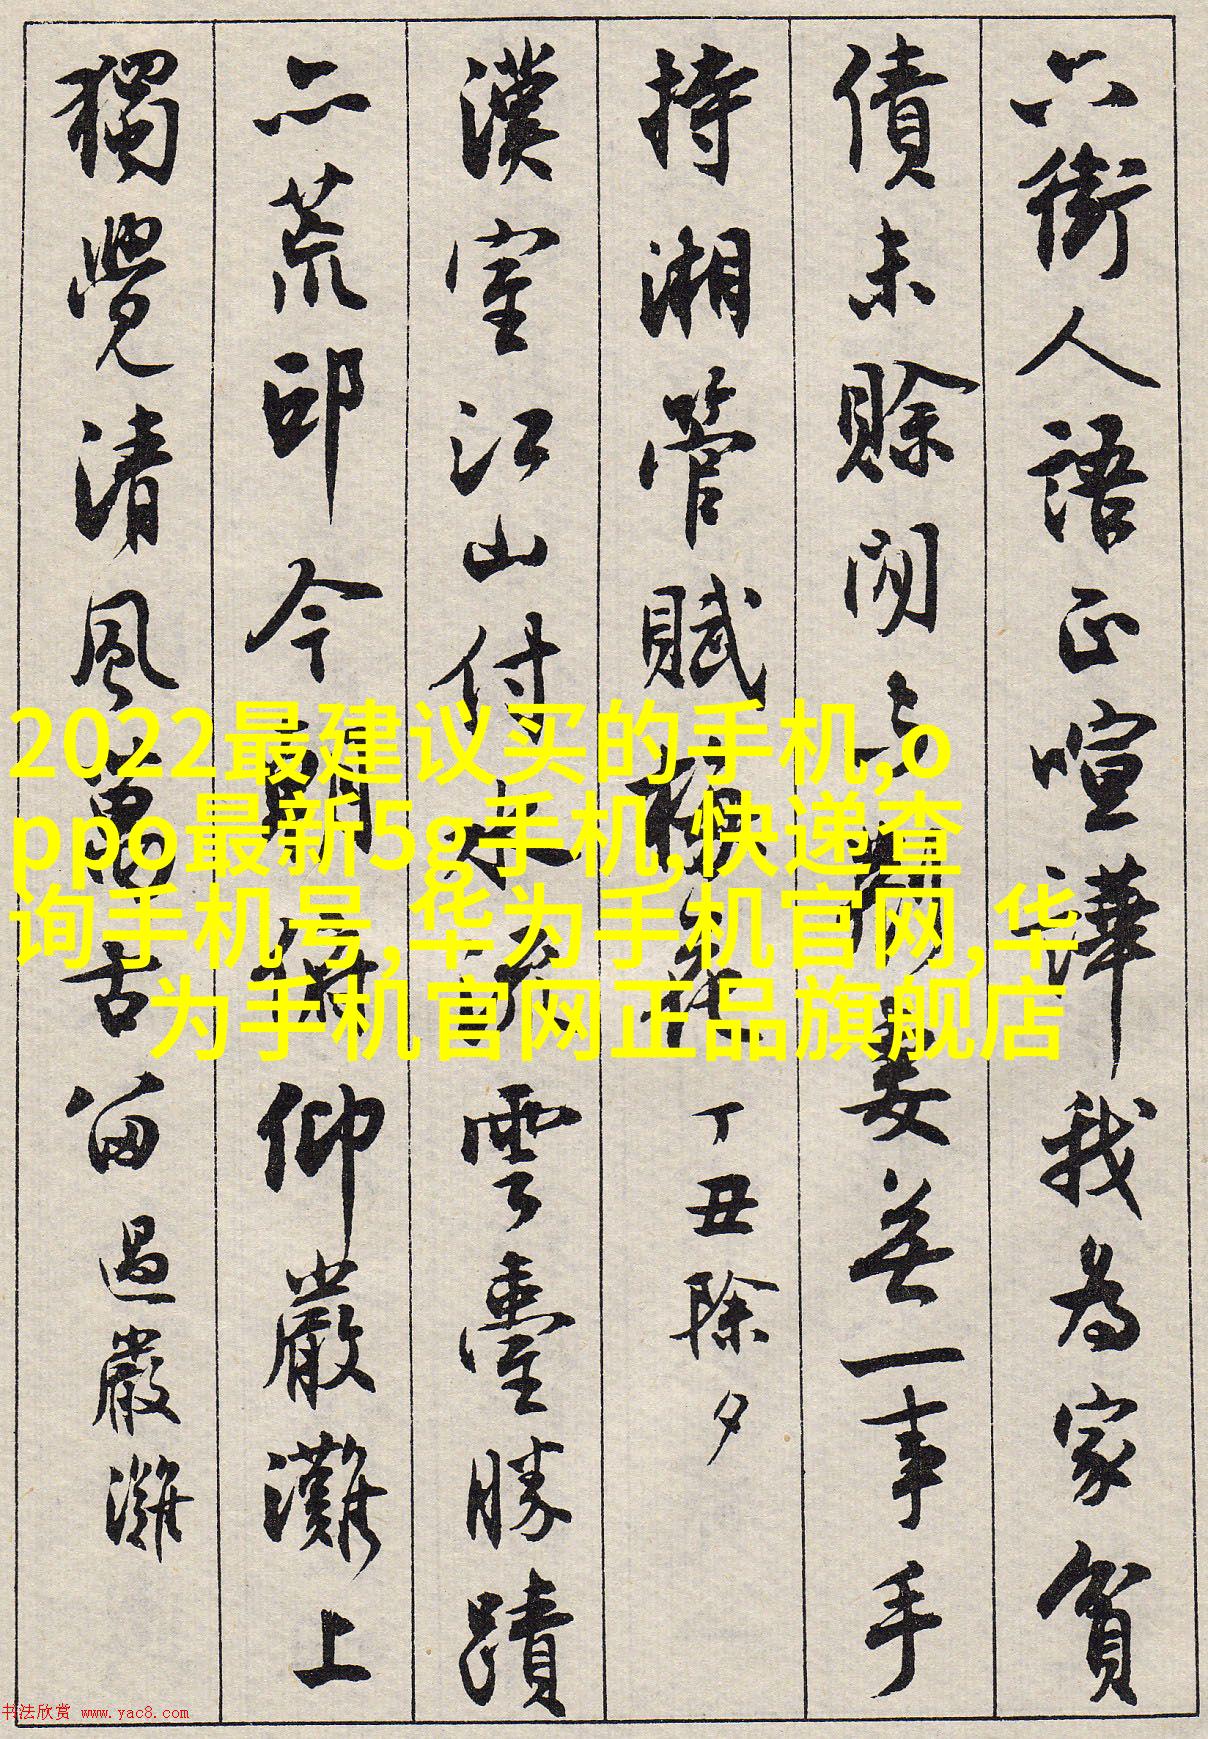 六街人語正喧譁我為家貧
債未賒閒与
婁無一事手
持湘管賦梅花
丁丑除夕
漢室江山付水流雲臺勝蹟
亦荒邱今朝
仰嚴灘上
獨覺清風萬古留
過嚴灘
2022最建议买的手机,o
ppo最新5g手机,快递查
询手机号,华为手机官网,华
为手机官网正品旗舰店
书法欣赏 www.yac8.com